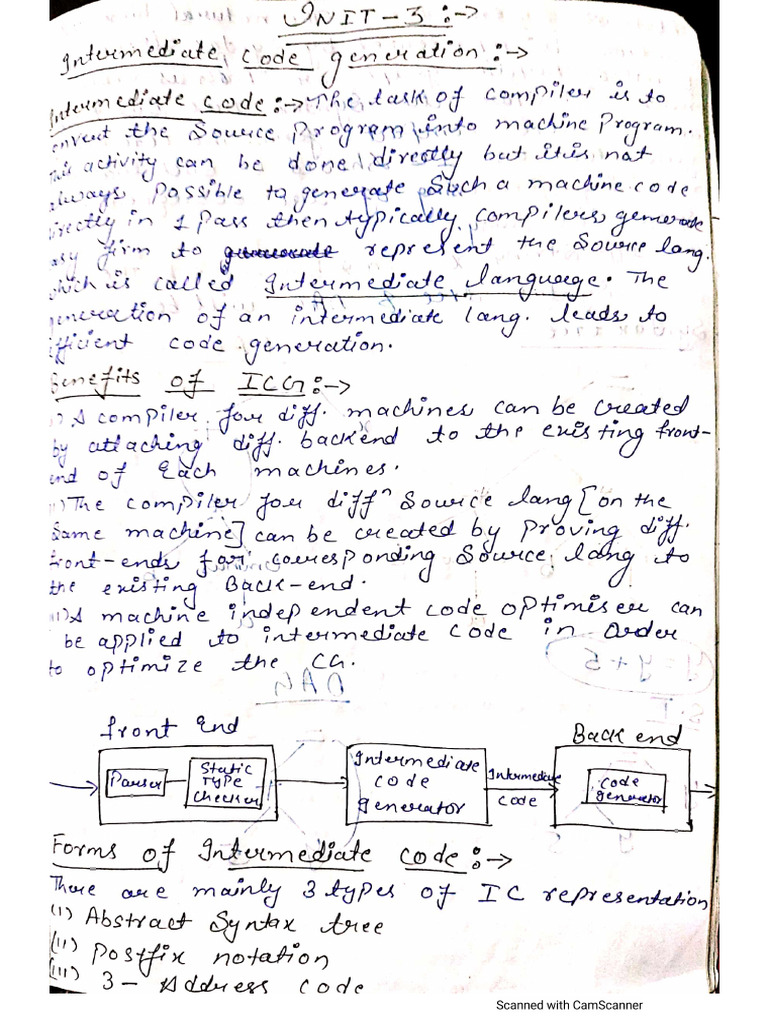 UNIT-3:→
Intermediate code generation:→
Intermediate code:→ The task of compiler is to
convert the Source Program into machine Program.
activity can be done directly but it is not
always possible to generate such a machine code
directly in 1 pass then typically compilers generate
easy firm to represent the source lang.
which is called Intermediate language. The
generation of an intermediate lang. leads to
efficient code generation.
Benefits of ICG:→
i) A compiler for diff. machines can be created
by attaching diff. backend to the existing front-
end of each machines.
ii) The compiler for diff^n source lang [on the
same machine] can be created by proving diff.
front-ends for corresponding source lang to
the existing Back-end.
iii) A machine independent code optimiser can
be applied to intermediate code in order
to optimize the CG.
front End
Back end
Parser
Static Type Checker
Intermediate code generator
Intermediate code
code generator
Forms of Intermediate code:→
There are mainly 3 types of IC representation
(i) Abstract Syntax tree
(ii) Postfix notation
(iii) 3- Address code
Scanned with CamScanner